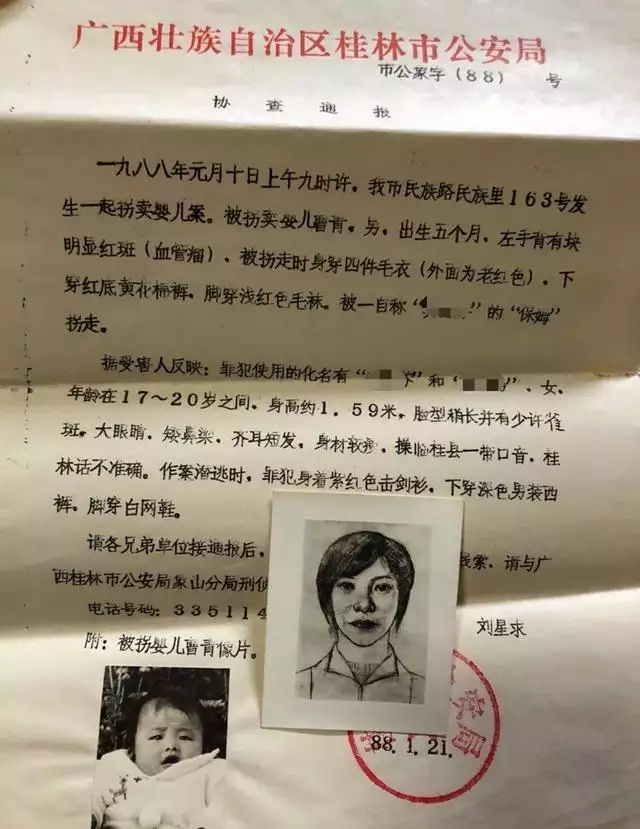 广西壮族自治区桂林市公安局
市公象字(88) 号
协查通报
一九八八年元月十日上午九时许。我市民族路民族里163号发
生一起拐卖婴儿案。被拐卖婴儿曹青。男，出生五个月，左手背有块
明显红斑(血管瘤)，被拐走时身穿四件毛衣(外面为老红色)，下
穿红底黄花棉裤，脚穿浅红色毛袜。被一自称“ ”的“保姆”
拐走。
据受害人反映：罪犯使用的化名有“ ”和“ ”，女，
年龄在17～20岁之间，身高约1.59米，脸型稍长并有少许雀
斑。大眼睛，矮鼻梁，齐耳短发，身材较瘦，操临桂县一带口音，桂
林话不准确。作案潜逃时，罪犯身着紫红色击剑衫，下穿深色男装西
裤，脚穿白网鞋。
请各兄弟单位接通报后， 线索，请与广
西桂林市公安局象山分局刑侦
电话号码：335114 刘星求
附：被拐婴儿曹青像片。
88.1.21.